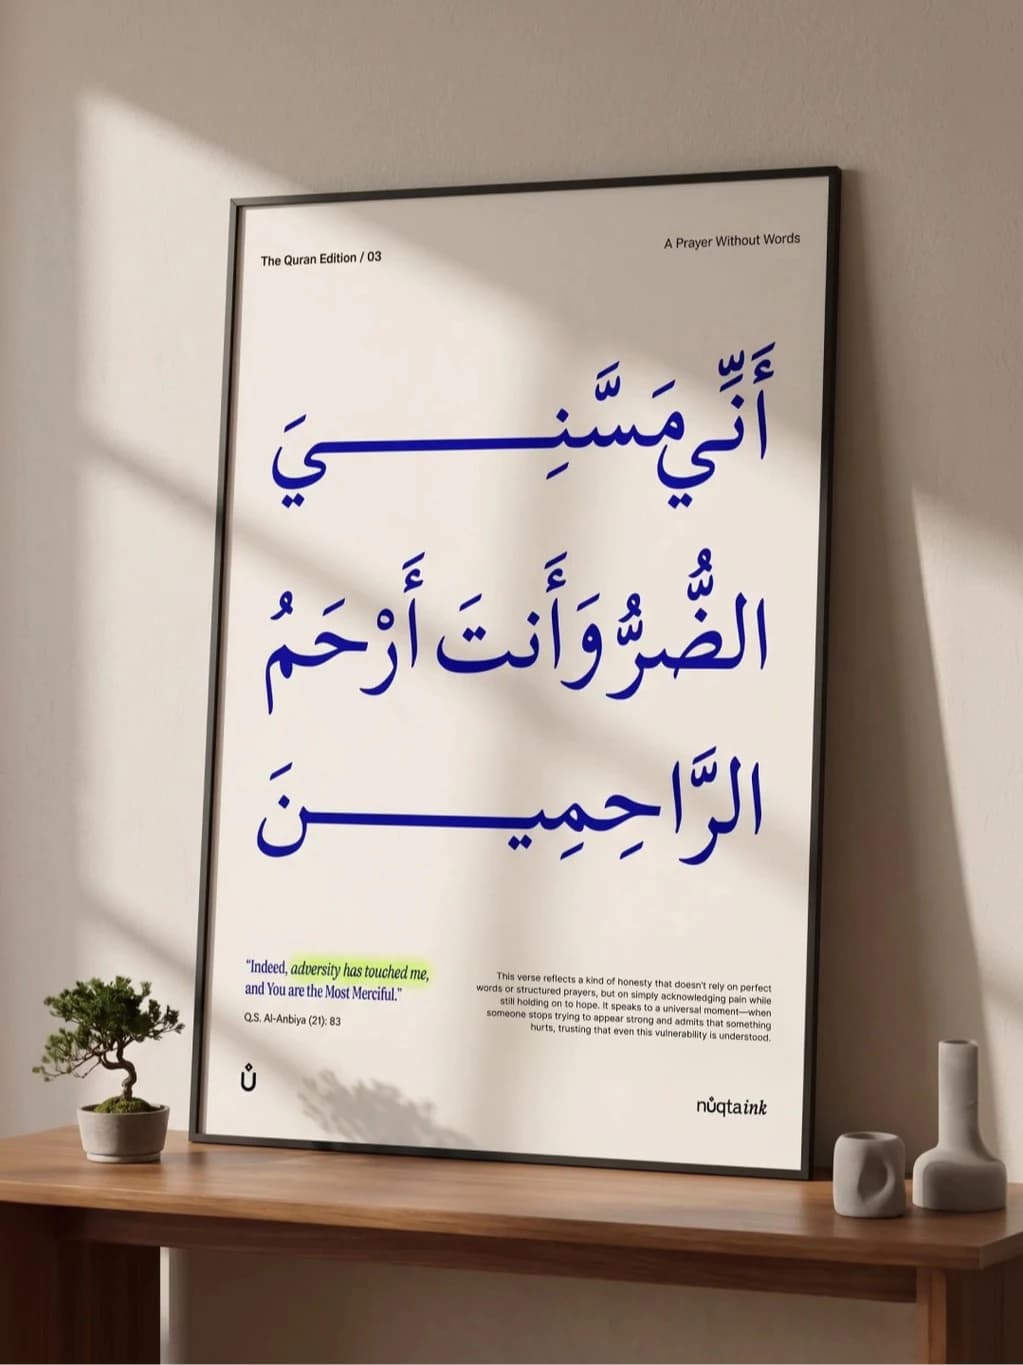 The Quran Edition / 03
A Prayer Without Words
أَنِّي مَسَّنِيَ
الضُّرُّ وَأَنتَ أَرْحَمُ
الرَّاحِمِينَ
“Indeed, adversity has touched me,
and You are the Most Merciful.”
Q.S. Al-Anbiya (21): 83
This verse reflects a kind of honesty that doesn't rely on perfect
words or structured prayers, but on simply acknowledging pain while
still holding on to hope. It speaks to a universal moment—when
someone stops trying to appear strong and admits that something
hurts, trusting that even this vulnerability is understood.
nuqtaink